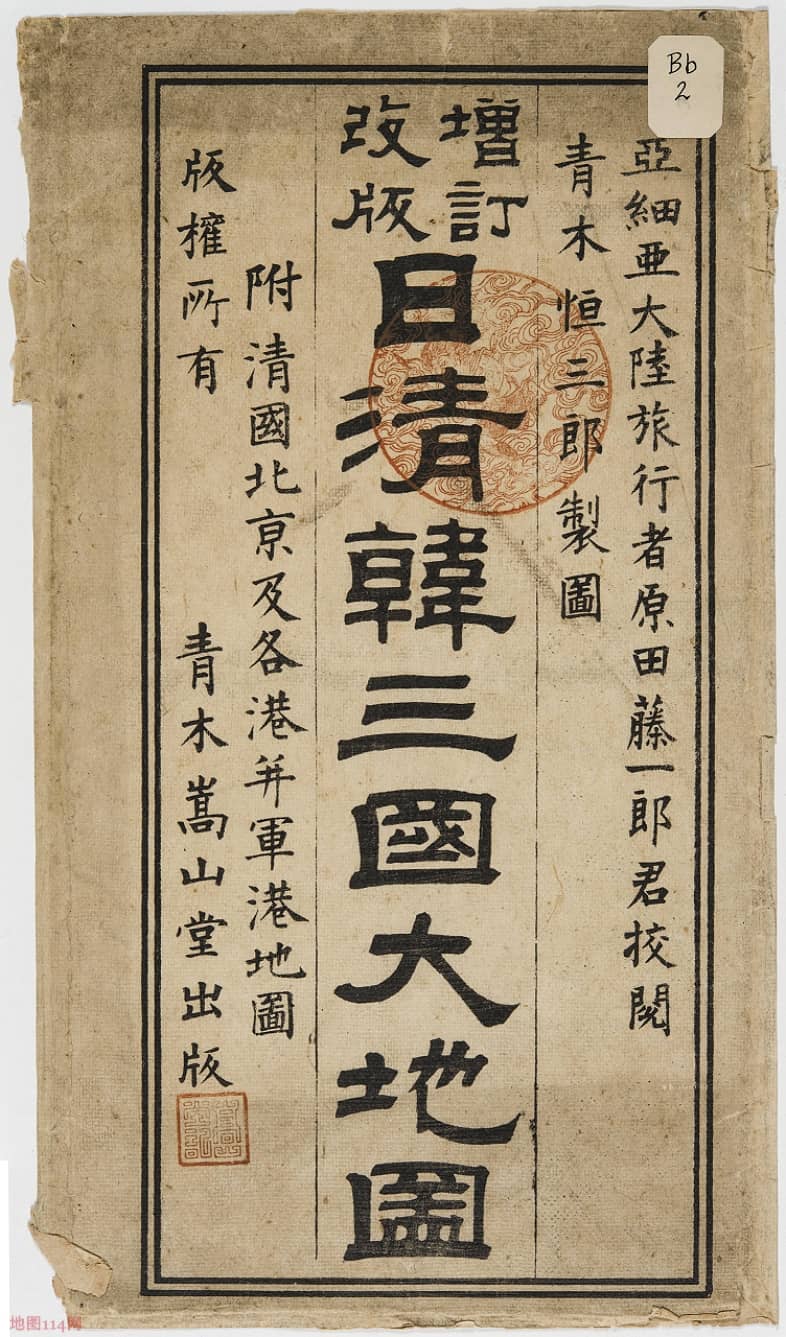 Bb
2
亞細亜大陸旅行者原田藤一郎君挍閱
青木恒三郎製圖
增訂
改版
日清韓三國大地圖
附清國北京及各港并軍港地圖
版權所有
青木嵩山堂出版
地图114网